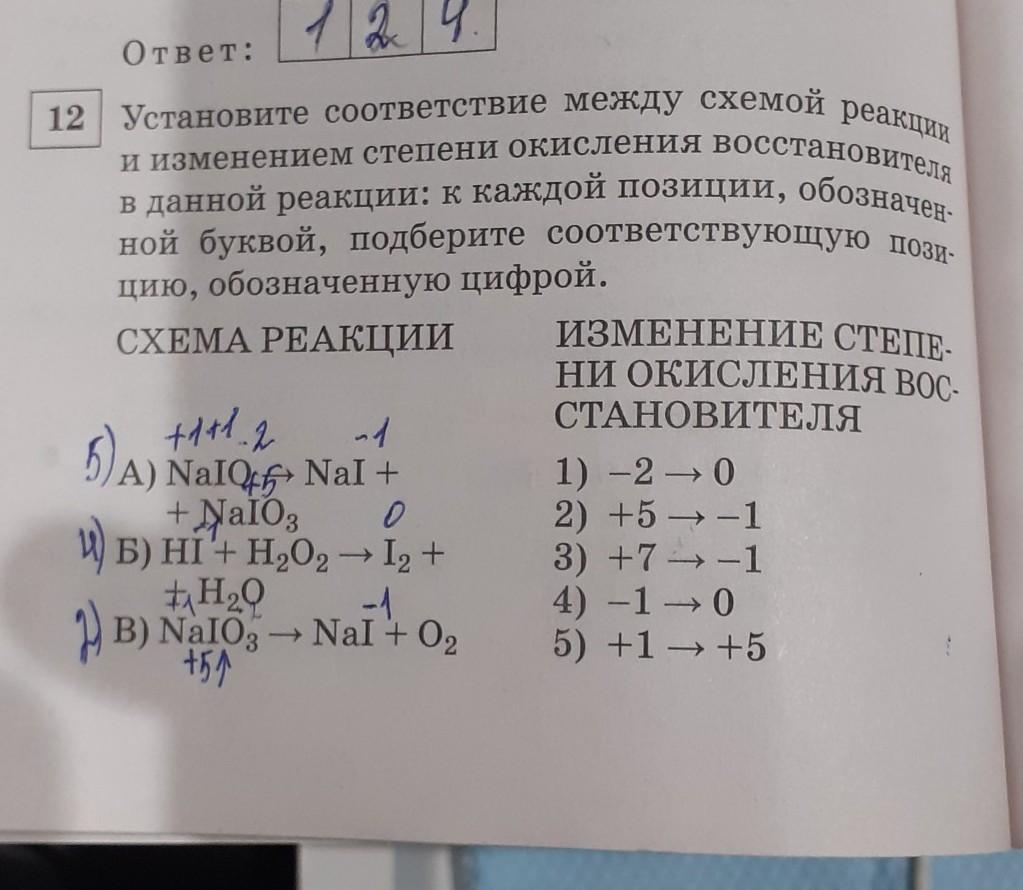 Ответ: 1 2 4.
12 Установите соответствие между схемой реакции
и изменением степени окисления восстановителя
в данной реакции: к каждой позиции, обозначен-
ной буквой, подберите соответствующую пози-
цию, обозначенную цифрой.
СХЕМА РЕАКЦИИ
+1+1-2 -1
5) А) NaIO → NaI +
+5
+ NaIO₃
-1 0
4) Б) HI + H₂O₂ → I₂ +
+ H₂O
+1 -1
2) В) NaIO₃ → NaI + O₂
+5↑
ИЗМЕНЕНИЕ СТЕПЕ-
НИ ОКИСЛЕНИЯ ВОС-
СТАНОВИТЕЛЯ
1) −2 → 0
2) +5 → −1
3) +7 → −1
4) −1 → 0
5) +1 → +5